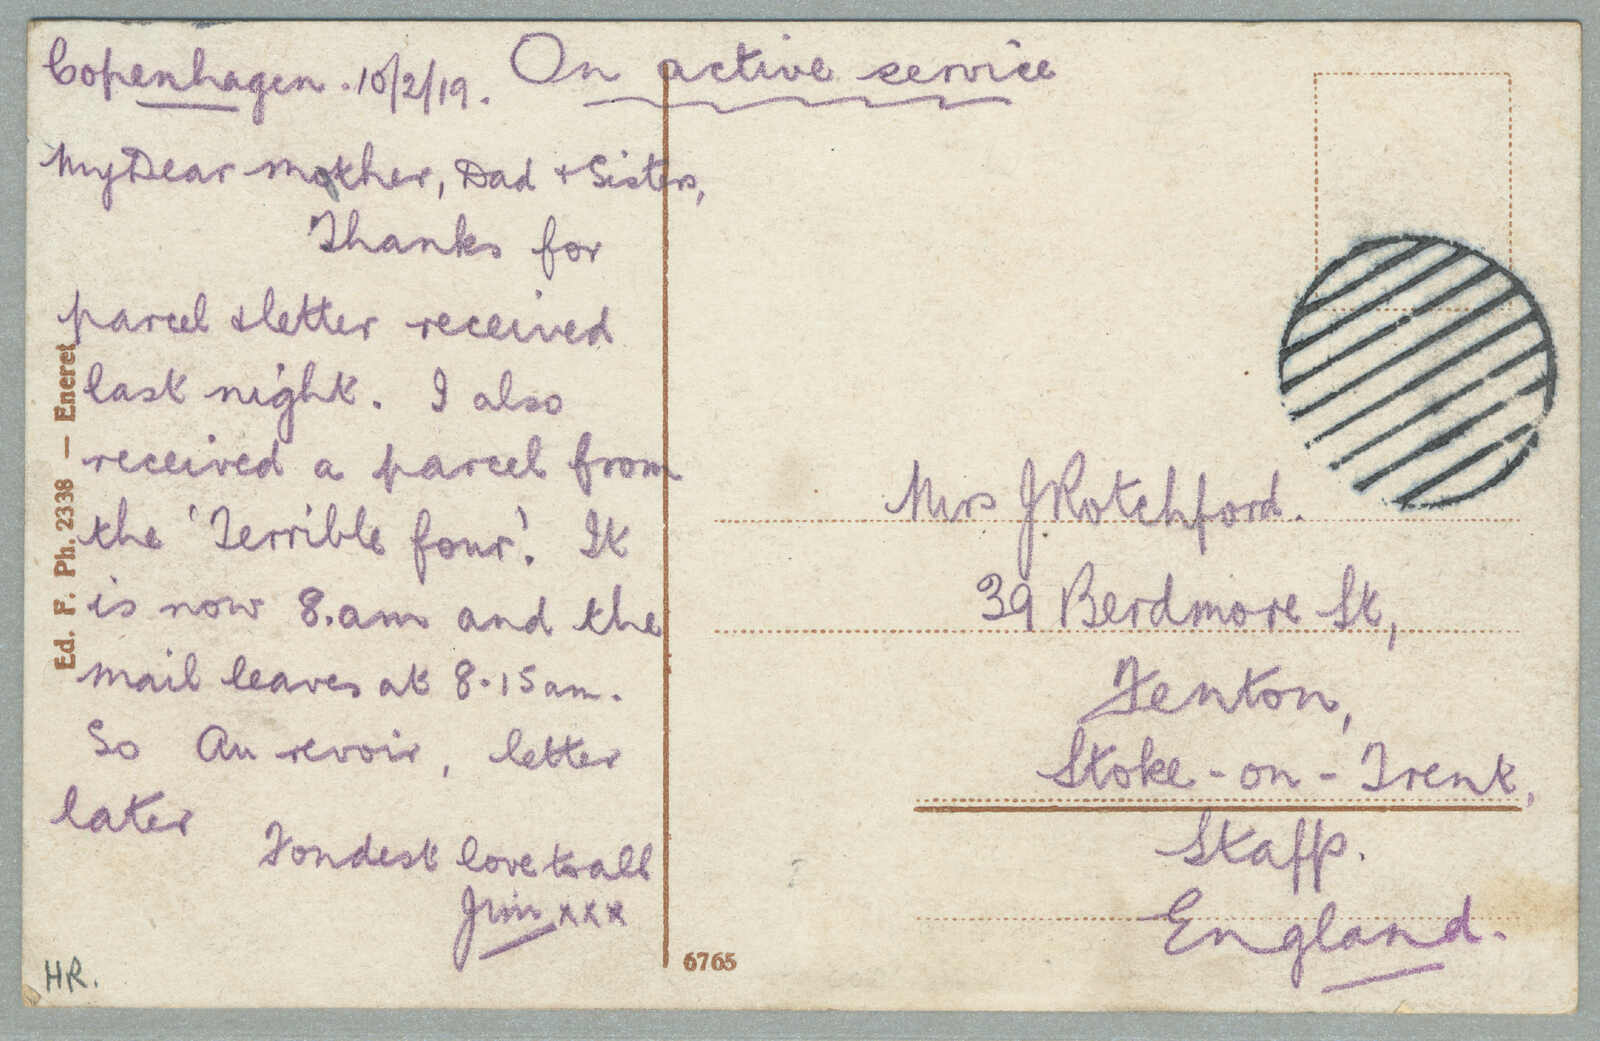 Copenhagen. 10/2/19.
On active service
My Dear Mother, Dad & Sisters,
Thanks for
parcel & letter received
last night. I also
received a parcel from
the 'Terrible four'. It
is now 8.am and the
mail leaves at 8.15am.
So Au revoir, letter
later
Fondest love to all
Jim xxx
HR.
Ed. F. Ph. 2338 — Eneret
6765
Mrs J Rotchford.
39 Berdmore St,
Fenton,
Stoke-on-Trent,
Staffs.
England.